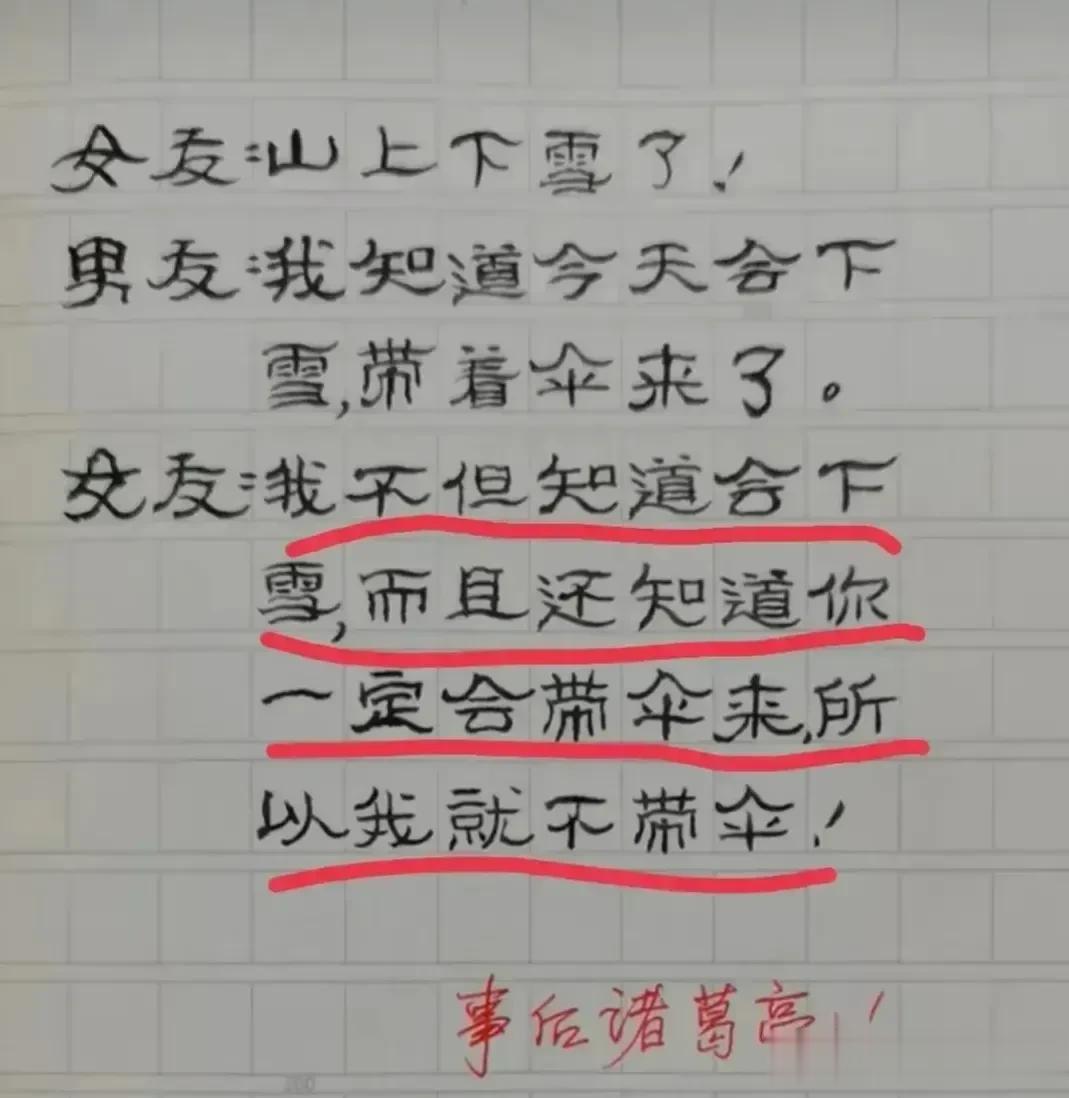 女友:山上下雪了!
男友:我知道今天会下
雪,带着伞来了。
女友:我不但知道会下
雪,而且还知道你
一定会带伞来,所
以我就不带伞!
事后诸葛亮!